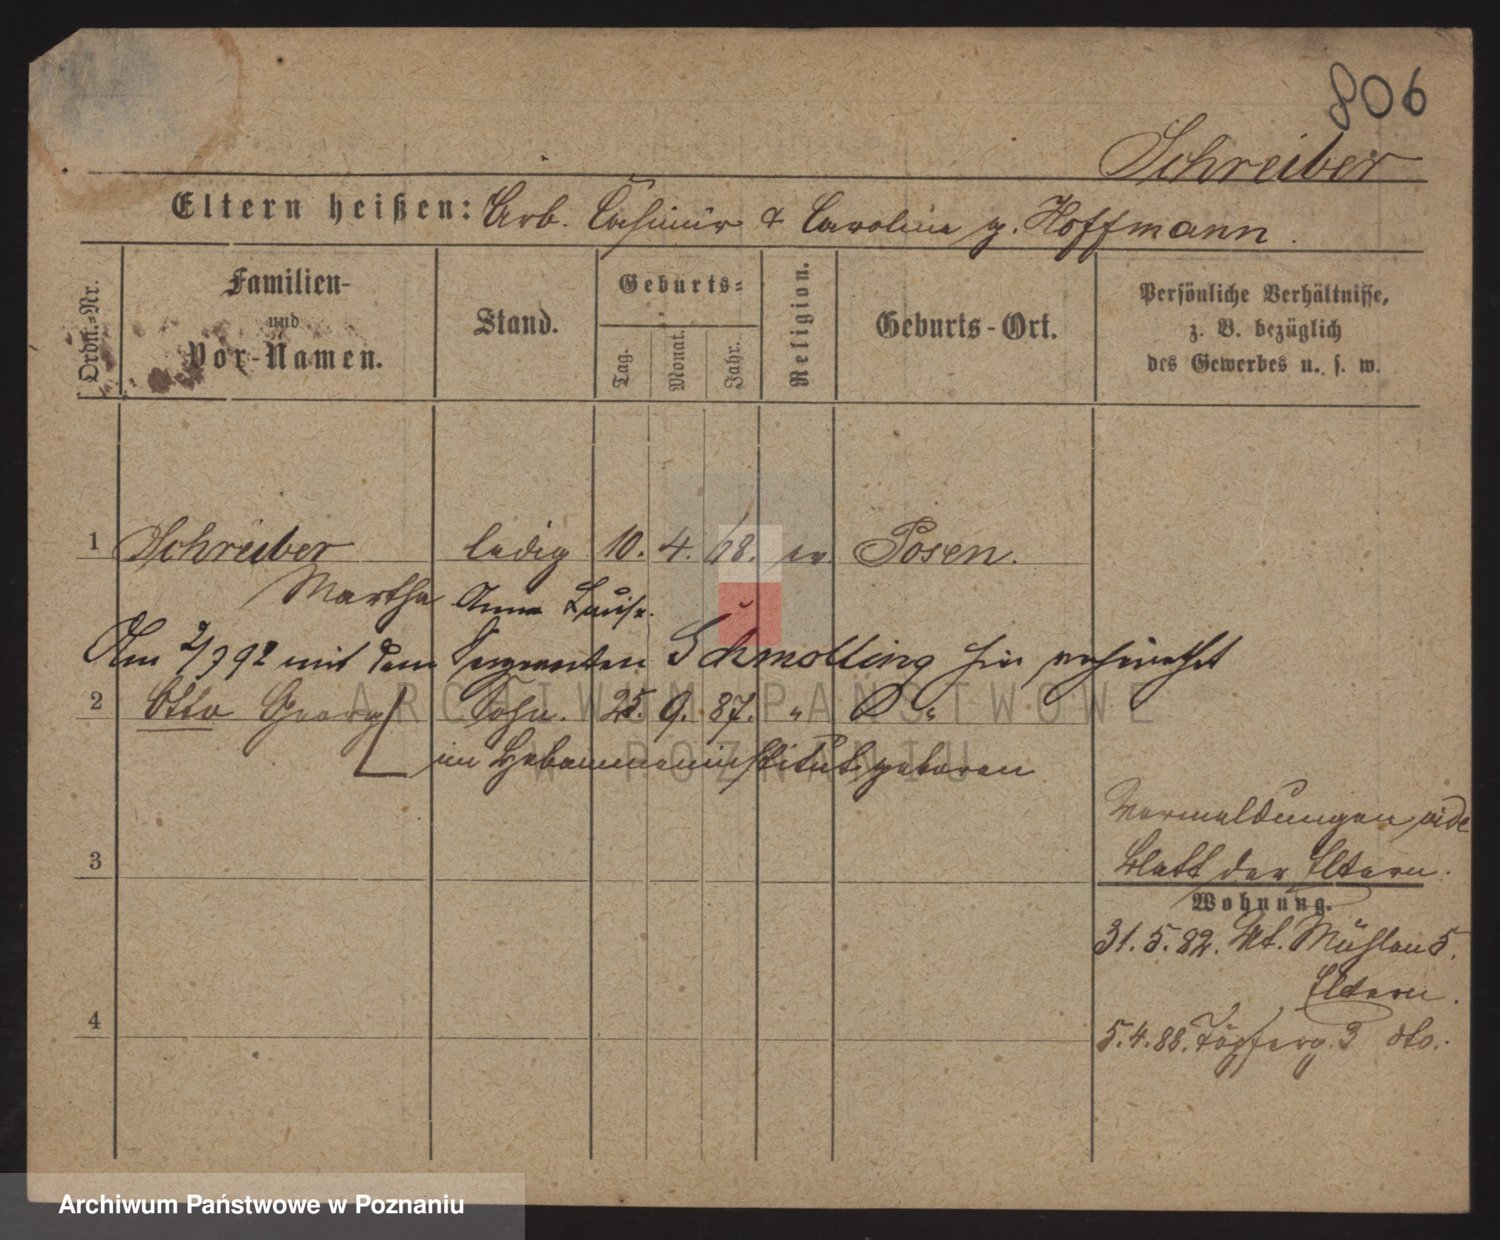 806
Schreiber
Eltern heißen: Arb. Casimir & Caroline g. Hoffmann.
Ordn.-Nr.
Familien- und Vor-Namen.
Stand.
Geburts-
Tag.
Monat.
Jahr.
Religion.
Geburts-Ort.
Persönliche Verhältnisse,
z. B. bezüglich
des Gewerbes u. s. w.
1 Schreiber ledig 10. 4. 68. ev Posen.
Martha Anna Luise.
Am 2/7 92 mit dem Sergeanten Schmolling hier verheirathet
2 Otto Georg Sohn. 25. 9. 87. " "
im Hebammeninstitut geboren
Vermeldungen vide
Blatt der Eltern.
3
Wohnung.
31. 5. 82. Mühlen 5.
Eltern.
4
5. 4. 88. Töpferg. 3 dto.
ARCHIWUM PAŃSTWOWE
W POZNANIU
Archiwum Państwowe w Poznaniu